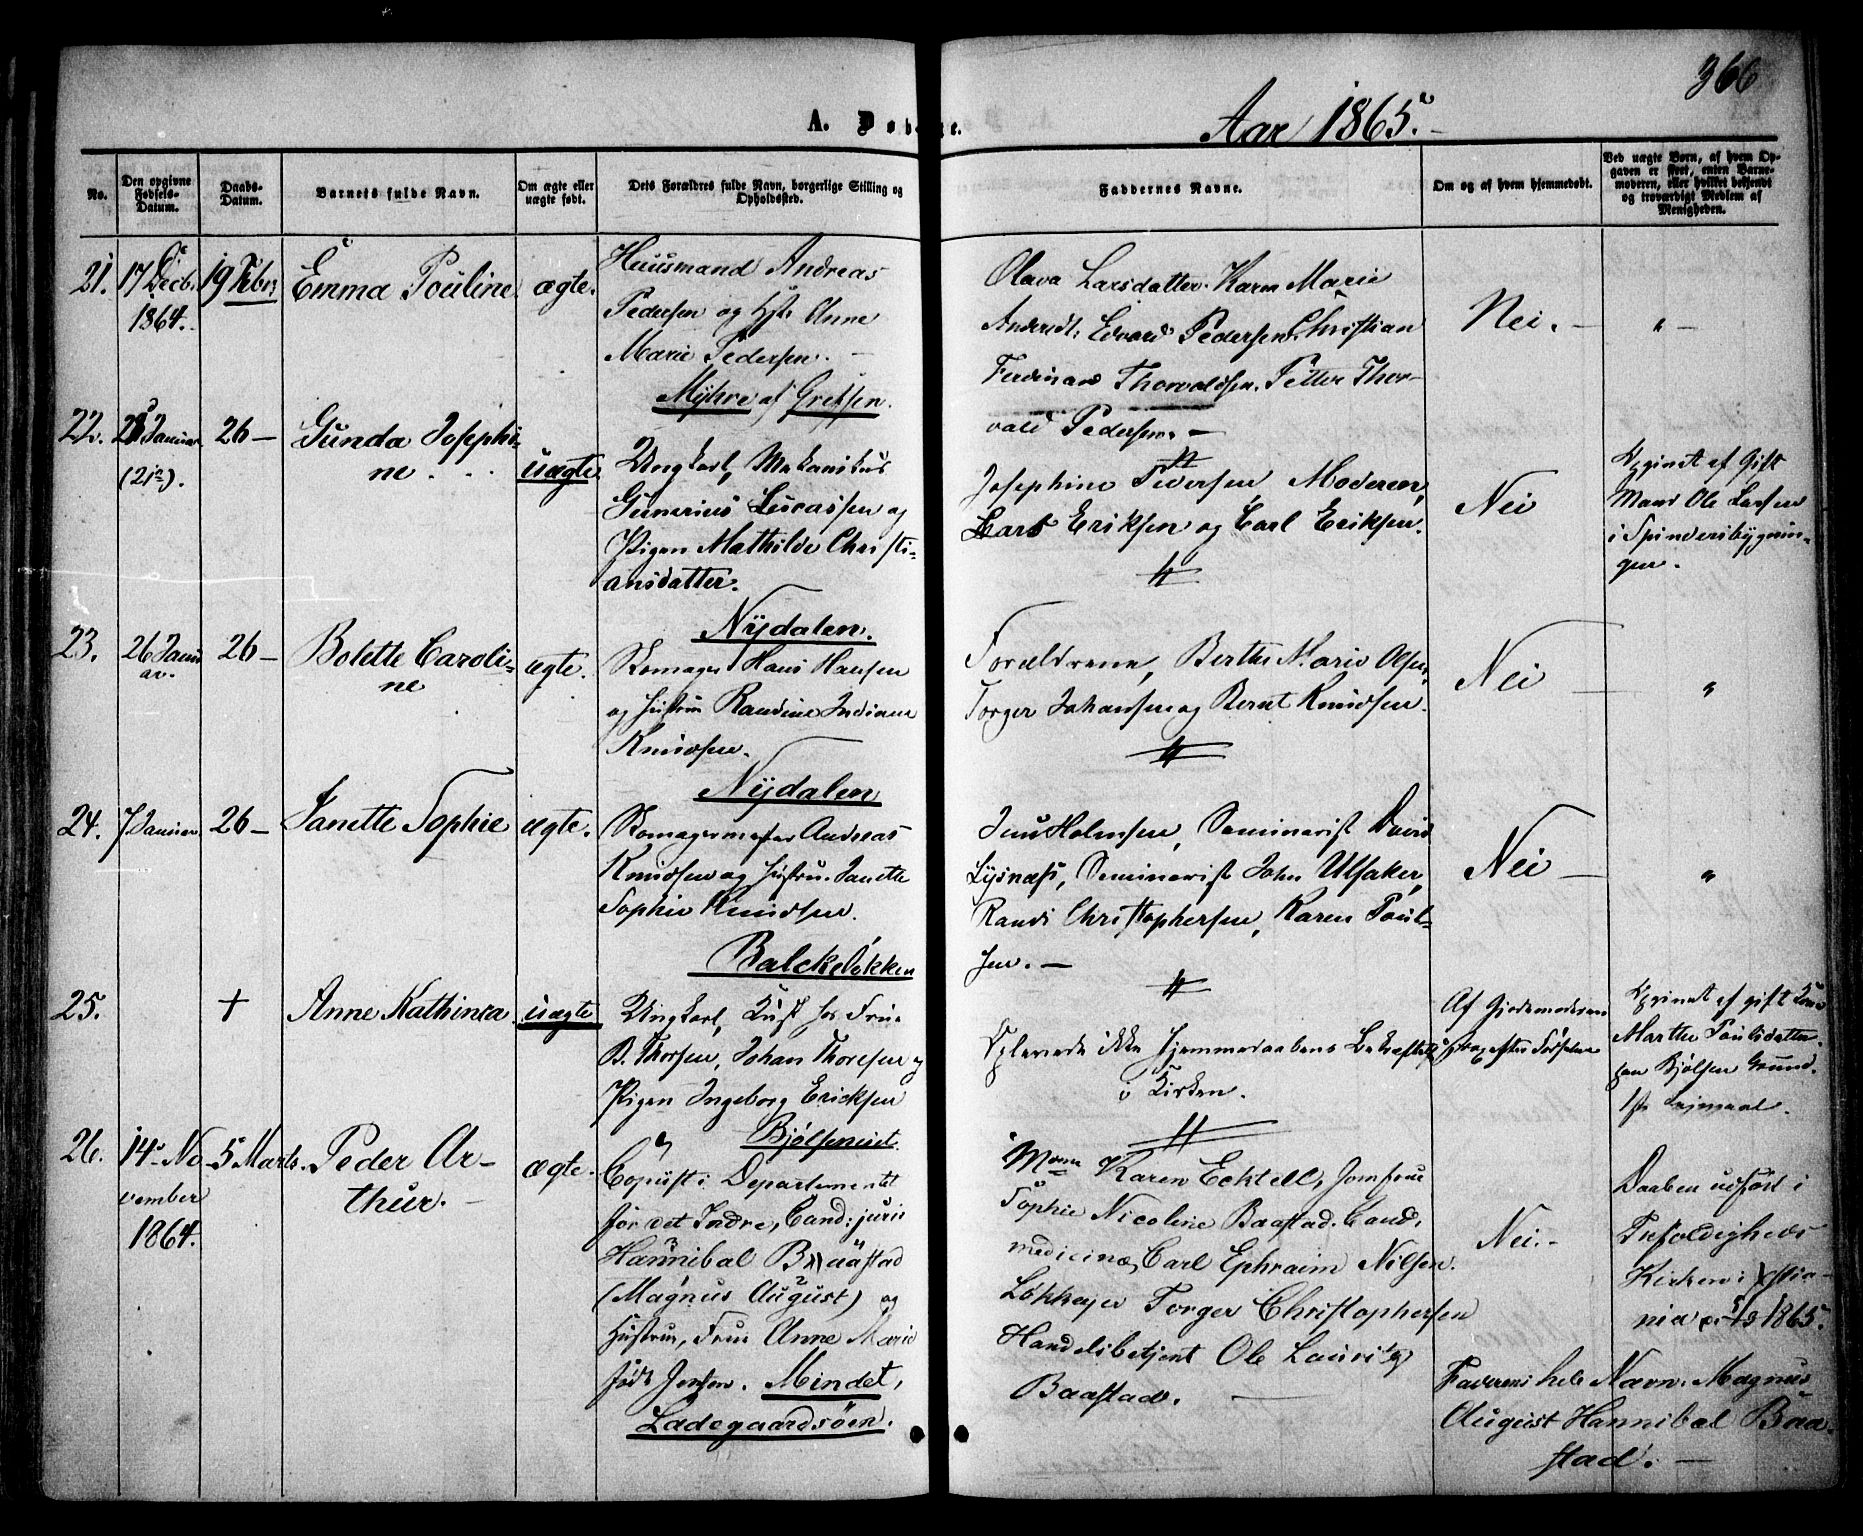 366
A. Døbte.
Aar 1865.
No.
Den opgivne Fødsels-Datum.
Daabs-Datum.
Barnets fulde Navn.
Om ægte eller uægte født.
Dets Forældres fulde Navn, borgerlige Stilling og Opholdssted.
Faddernes Navne.
Om og af hvem hjemmedøbt.
Ved uægte Børn, af hvem Opgaven er skeet, enten Barnemoderen, eller hvilket bekjendt og troværdigt Medlem af Menigheden.
21.
17 Decb.
1864.
19 Febr.
Emma Pouline
ægte.
Huusmand Andreas
Pedersen og Hst. Anne
Marie Pedersen.
Myhre af Grefsen.
Olava Larsdatter. Karen Marie
Andersdt. Edvard Pedersen. Christian
Ferdinand Thorvaldsen. Petter Thor-
vald Pedersen. —
Nei. —
" —
22.
Januar
(21de).
26 —
Gunda Josephi-
ne
uægte.
Ungkarl, Mekanikus
Gunerius Lucassen og
Pigen Mathilde Christi-
ansdatter.
Nydalen.
Josephine Pedersen Moderen,
Lars Eriksen og Carl Eriksen.
Nei
Opgivet af Gift
Mand Ole Larsen
i Spinderibygnin-
gen.
23.
26 Janu
ar.
26 —
Bolette Caroli-
ne
ægte.
Skomager Hans Hansen
og Hustru Randine Indiane
Knudsen.
Nydalen
Forældrene, Berthe Marie Olsen,
Torger Johansen og Bernt Knudsen.
Nei —
"
24.
7 Januar
26 —
Janette Sophie
ægte.
Skomagermester Andreas
Knudsen og Hustru Janette
Sophie Knudsen.
Balkeløkken
Jens Holmsen, Seminarist David
Lysnæs, Seminarist John Ulsaker,
Randi Christophersen, Karen Poul-
sen. —
Nei —
"
25.
+
Anne Kathinca
uægte
Ungkarl, Kudsk hos Fru
B. Thorsen, Johan Thoresen og
Pigen Ingeborg Ericksen
Bjølseneiet.
Oplevede ikke Hjemmedaabens Bekræftelse
i Kirken.
Af Gjordemoderen
strax efter Fødselen
Opgivet af gift Kone
Marthe Poulsdatter
paa Bjølsen Grund.
1ste Leiermaal.
26.
14. No
vember
1864.
5 Marts.
Peder Ar-
thur. —
ægte.
Copiist i Departementet
for det Indre, Cand: juris
Hannibal Baastad
(Magnus August) og
Hustru, Frue Anne Marie
født Jensen. Mindet,
Ladegaardsøen.
Karen Ecktell, Jomfrue
Sophie Nicoline Baastad. Cand.
medicinæ, Carl Ephraim Nilsen.
Løkkeejer Torger Christophersen
Handelsbetjent Ole Lauritz
Baastad.
Nei. —
Daaben udført i
Trefoldigheds
Kirken i Xstia-
nia 5/3 1865.
Faderens hele Navn: Magnus
August Hannibal Baa-
stad. —